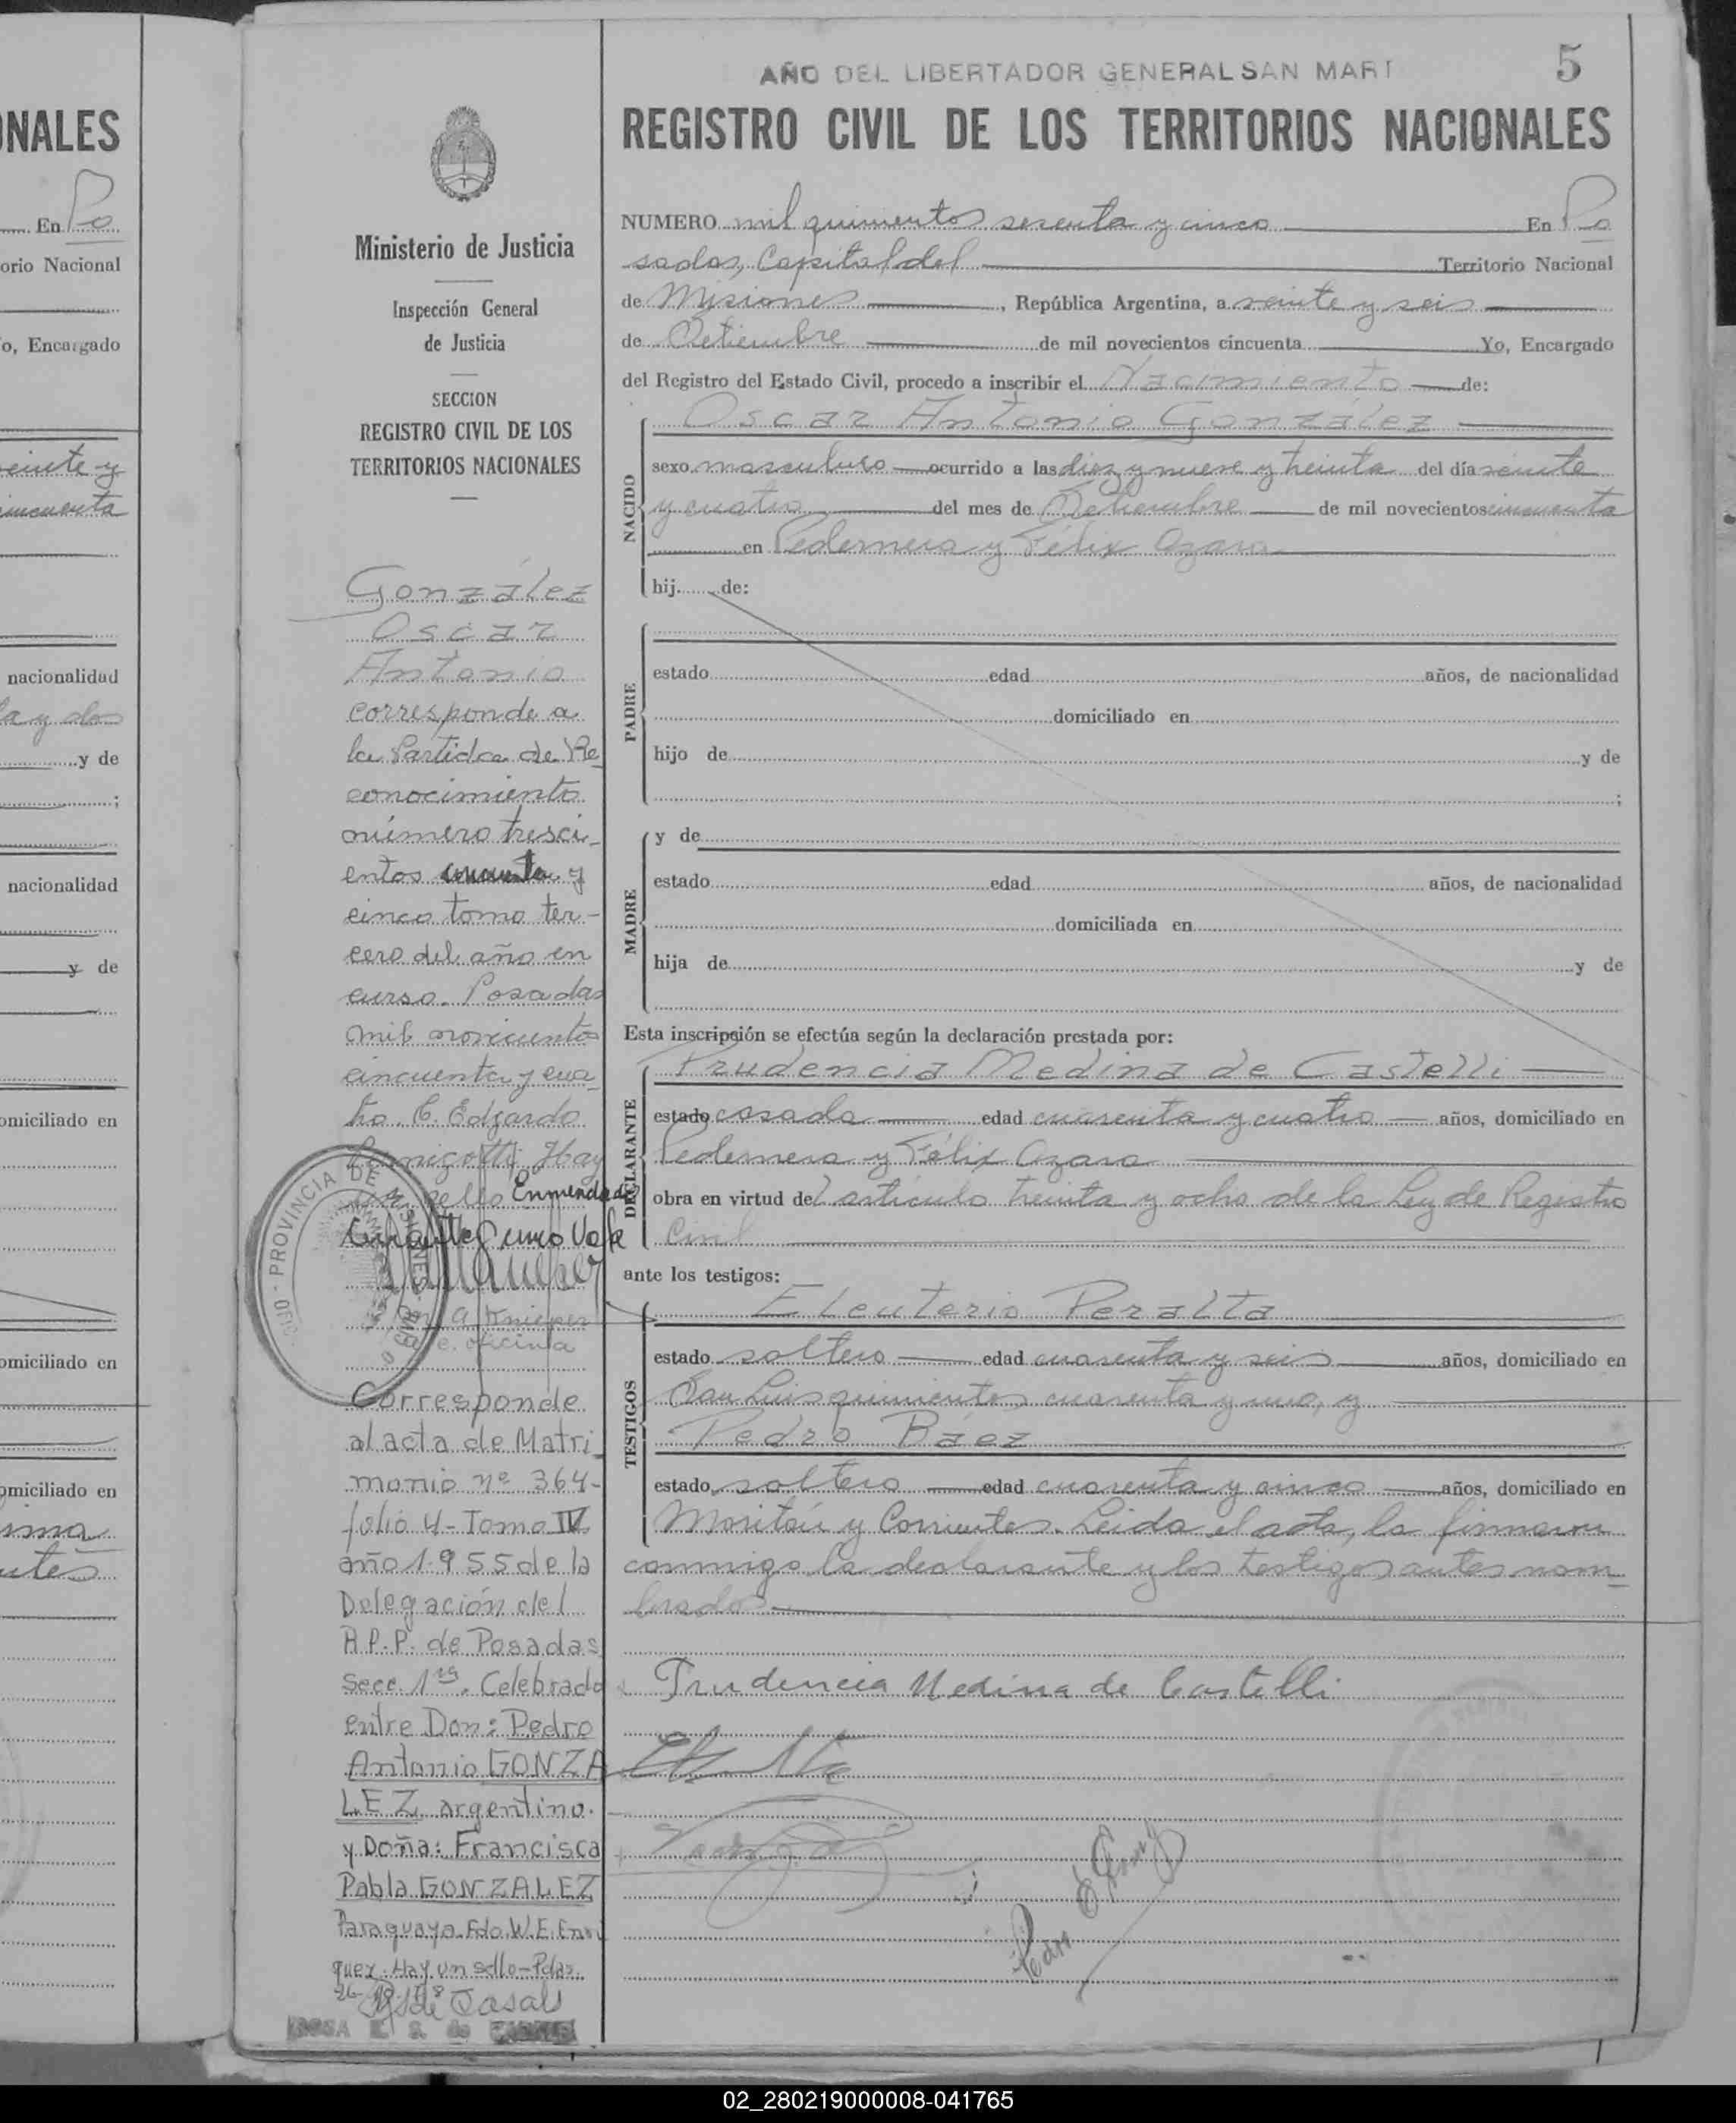 ONALES
En Po
orio Nacional
o, Encargado
veinte y
cincuenta
nacionalidad
ta y dos
y de
;
nacionalidad
y de
omiciliado en
omiciliado en
omiciliado en
Ministerio de Justicia
Inspección General
de Justicia
SECCION
REGISTRO CIVIL DE LOS
TERRITORIOS NACIONALES
González
Oscar
Antonio
corresponde a
la Partida de Re
conocimiento
número tresci-
entos cincuenta y
cinco tomo ter-
cero del año en
curso. Posadas
mil novecientos
cincuenta y cua
tro. C. Edgardo
Hay
sello Enmendado
cincuenta y cinco Vale
PROVINCIA DE MISIONES
Corresponde
al acta de Matri
monio nº 364-
folio 4-Tomo IV
año 1.955 de la
Delegación del
R.P.P. de Posadas
Secc. 1ra. Celebrada
entre Don: Pedro
Antonio GONZA
LEZ argentino.
y Doña: Francisca
Pabla GONZALEZ
Paraguaya. Fdo. W.E. Enri
quez. Hay un sello-Pdas.
de Casals
AÑO DEL LIBERTADOR GENERAL SAN MART
5
REGISTRO CIVIL DE LOS TERRITORIOS NACIONALES
NUMERO mil quinientos sesenta y cinco En Po
sadas, Capital del Territorio Nacional
de Misiones, República Argentina, a veinte y seis
de Setiembre de mil novecientos cincuenta Yo, Encargado
del Registro del Estado Civil, procedo a inscribir el Nacimiento de:
NACIDO
Oscar Antonio González
sexo masculino ocurrido a las diez y nueve y treinta del día veinte
y cuatro del mes de Setiembre de mil novecientos cincuenta
en Pedernera y Félix Azara
hij de:
PADRE
estado edad años, de nacionalidad
domiciliado en
hijo de y de
;
MADRE
y de
estado edad años, de nacionalidad
domiciliada en
hija de y de
Esta inscripción se efectúa según la declaración prestada por:
DECLARANTE
Prudencia Medina de Castelli
estado casada edad cuarenta y cuatro años, domiciliado en
Pedernera y Félix Azara
obra en virtud del artículo treinta y ocho de la Ley de Registro
Civil
ante los testigos:
TESTIGOS
Eleuterio Peralta
estado soltero edad cuarenta y seis años, domiciliado en
San Luis quinientos cuarenta y uno, y
Pedro Báez
estado soltero edad cuarenta y cinco años, domiciliado en
Moritán y Corrientes. Leida el acta, la firmaron
conmigo la declarante y los testigos antes nom-
brados
Prudencia Medina de Castelli
02_280219000008-041765